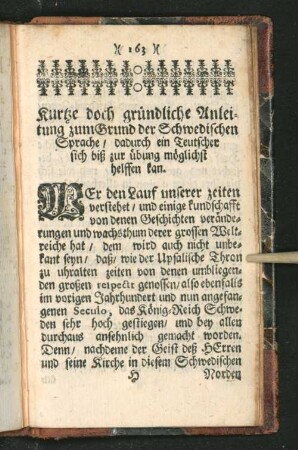 )( 163 )(
Kurtze doch gründliche Anlei-
tung zum Grund der Schwedischen
Sprache/ dadurch ein Teutscher
sich biß zur übung möglichst
helffen kan.
WEr den Lauf unserer zeiten
verstehet/ und einige kundschafft
von denen Geschichten verände-
rungen und wachsthum derer grossen Welt-
reiche hat/ dem wird auch nicht unbe-
kant seyn/ daß/ wie der Upsalische Thron
zu uhralten zeiten von denen umbliegen-
den großen respect genossen/ also ebenfalls
im vorigen Jahrhundert und nun angefan-
genen Seculo, das König-Reich Schwe-
den sehr hoch gestiegen/ und bey allen
durchaus ansehnlich gemacht worden.
Denn/ nachdeme der Geist deß HErren
und seine Kirche in diesem Schwedischen
H Norden